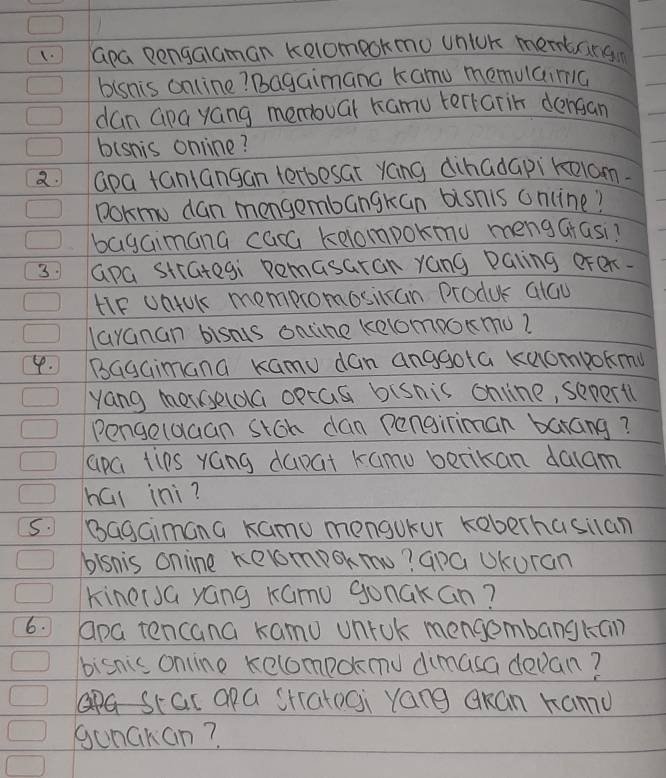 1. apa pengalaman kelompokmu untuk membangun
bisnis online? Bagaimana kamu memulainya
dan apa yang membuat kamu tertarik dengan
bisnis online?
2. apa tantangan terbesar yang dihadapi kelom-
pokmu dan mengembangkan bisnis online?
bagaimana cara kelompokmu mengatasi?
3. apa strategi pemasaran yang paling efek-
tif untuk mempromosikan produk atau
layanan bisnis online kelompokmu?
4. Bagaimana kamu dan anggota kelompokmu
yang mengelola operasi bisnis online, seperti
pengelolaan stok dan pengiriman barang?
apa tips yang dapat kamu berikan dalam
hal ini?
5. Bagaimana kamu mengukur keberhasilan
bisnis online kelompokmu? apa ukuran
kinerja yang kamu gunakan?
6. apa rencana kamu untuk mengembangkan
bisnis online kelompokmu dimasa depan?
apa strategi yang akan kamu
gunakan?